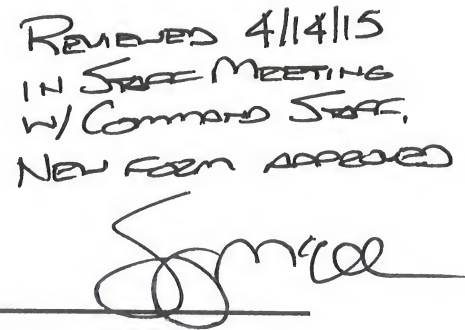 REVIEWED 4/14/15
IN STAFF MEETING
W/ COMMAND STAFF.
NEW FORM APPROVED